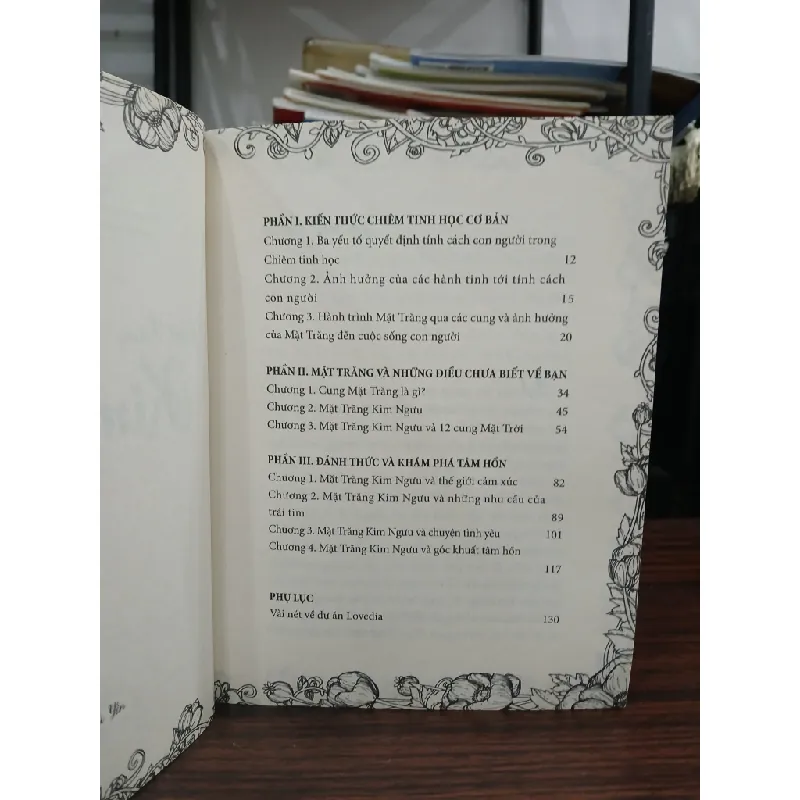 PHẦN I. KIẾN THỨC CHIÊM TINH HỌC CƠ BẢN
Chương 1. Ba yếu tố quyết định tính cách con người trong
Chiêm tinh học 12
Chương 2. Ảnh hưởng của các hành tinh tới tính cách
con người 15
Chương 3. Hành trình Mặt Trăng qua các cung và ảnh hưởng
của Mặt Trăng đến cuộc sống con người 20
PHẦN II. MẶT TRĂNG VÀ NHỮNG ĐIỀU CHƯA BIẾT VỀ BẠN
Chương 1. Cung Mặt Trăng là gì? 34
Chương 2. Mặt Trăng Kim Ngưu 45
Chương 3. Mặt Trăng Kim Ngưu và 12 cung Mặt Trời 54
PHẦN III. ĐÁNH THỨC VÀ KHÁM PHÁ TÂM HỒN
Chương 1. Mặt Trăng Kim Ngưu và thế giới cảm xúc 82
Chương 2. Mặt Trăng Kim Ngưu và những nhu cầu của
trái tim 89
Chương 3. Mặt Trăng Kim Ngưu và chuyện tình yêu 101
Chương 4. Mặt Trăng Kim Ngưu và góc khuất tâm hồn
117
PHỤ LỤC
Vài nét về dự án Lovedia 130